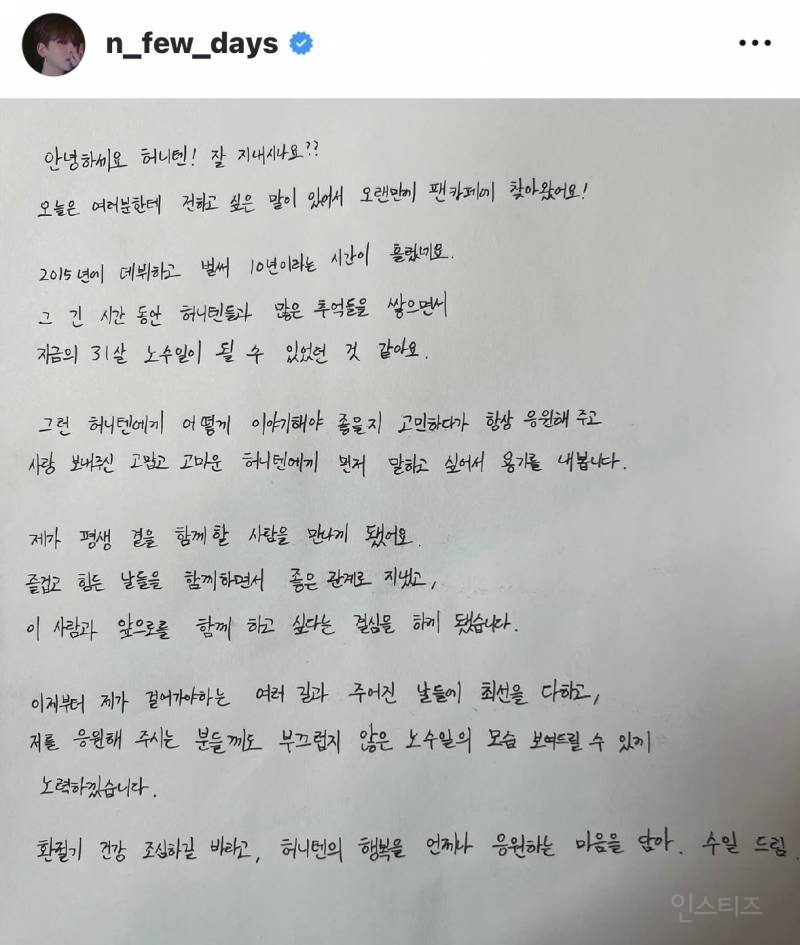 n_few_days
안녕하세요 허니텐! 잘 지내시나요??
오늘은 여러분한테 전하고 싶은 말이 있어서 오랜만에 팬카페에 찾아왔어요!
2015년에 데뷔하고 벌써 10년이라는 시간이 흘렀네요.
그 긴 시간 동안 허니텐들과 많은 추억들을 쌓으면서
지금의 31살 노수일이 될 수 있었던 것 같아요.
그런 허니텐에게 어떻게 이야기해야 좋을지 고민하다가 항상 응원해 주고
사랑 보내주신 고맙고 고마운 허니텐에게 먼저 말하고 싶어서 용기를 내봅니다.
제가 평생 곁을 함께할 사람을 만나게 됐어요.
즐겁고 힘든 날들을 함께하면서 좋은 관계로 지냈고,
이 사람과 앞으로를 함께 하고 싶다는 결심을 하게 됐습니다.
이제부터 제가 걸어가야하는 여러 길과 주어진 날들에 최선을 다하고,
저를 응원해 주시는 분들께도 부끄럽지 않은 노수일의 모습 보여드릴 수 있게
노력하겠습니다.
환절기 건강 조심하길 바라고, 허니텐의 행복을 언제나 응원하는 마음을 담아. 수일 드림.
인스티즈